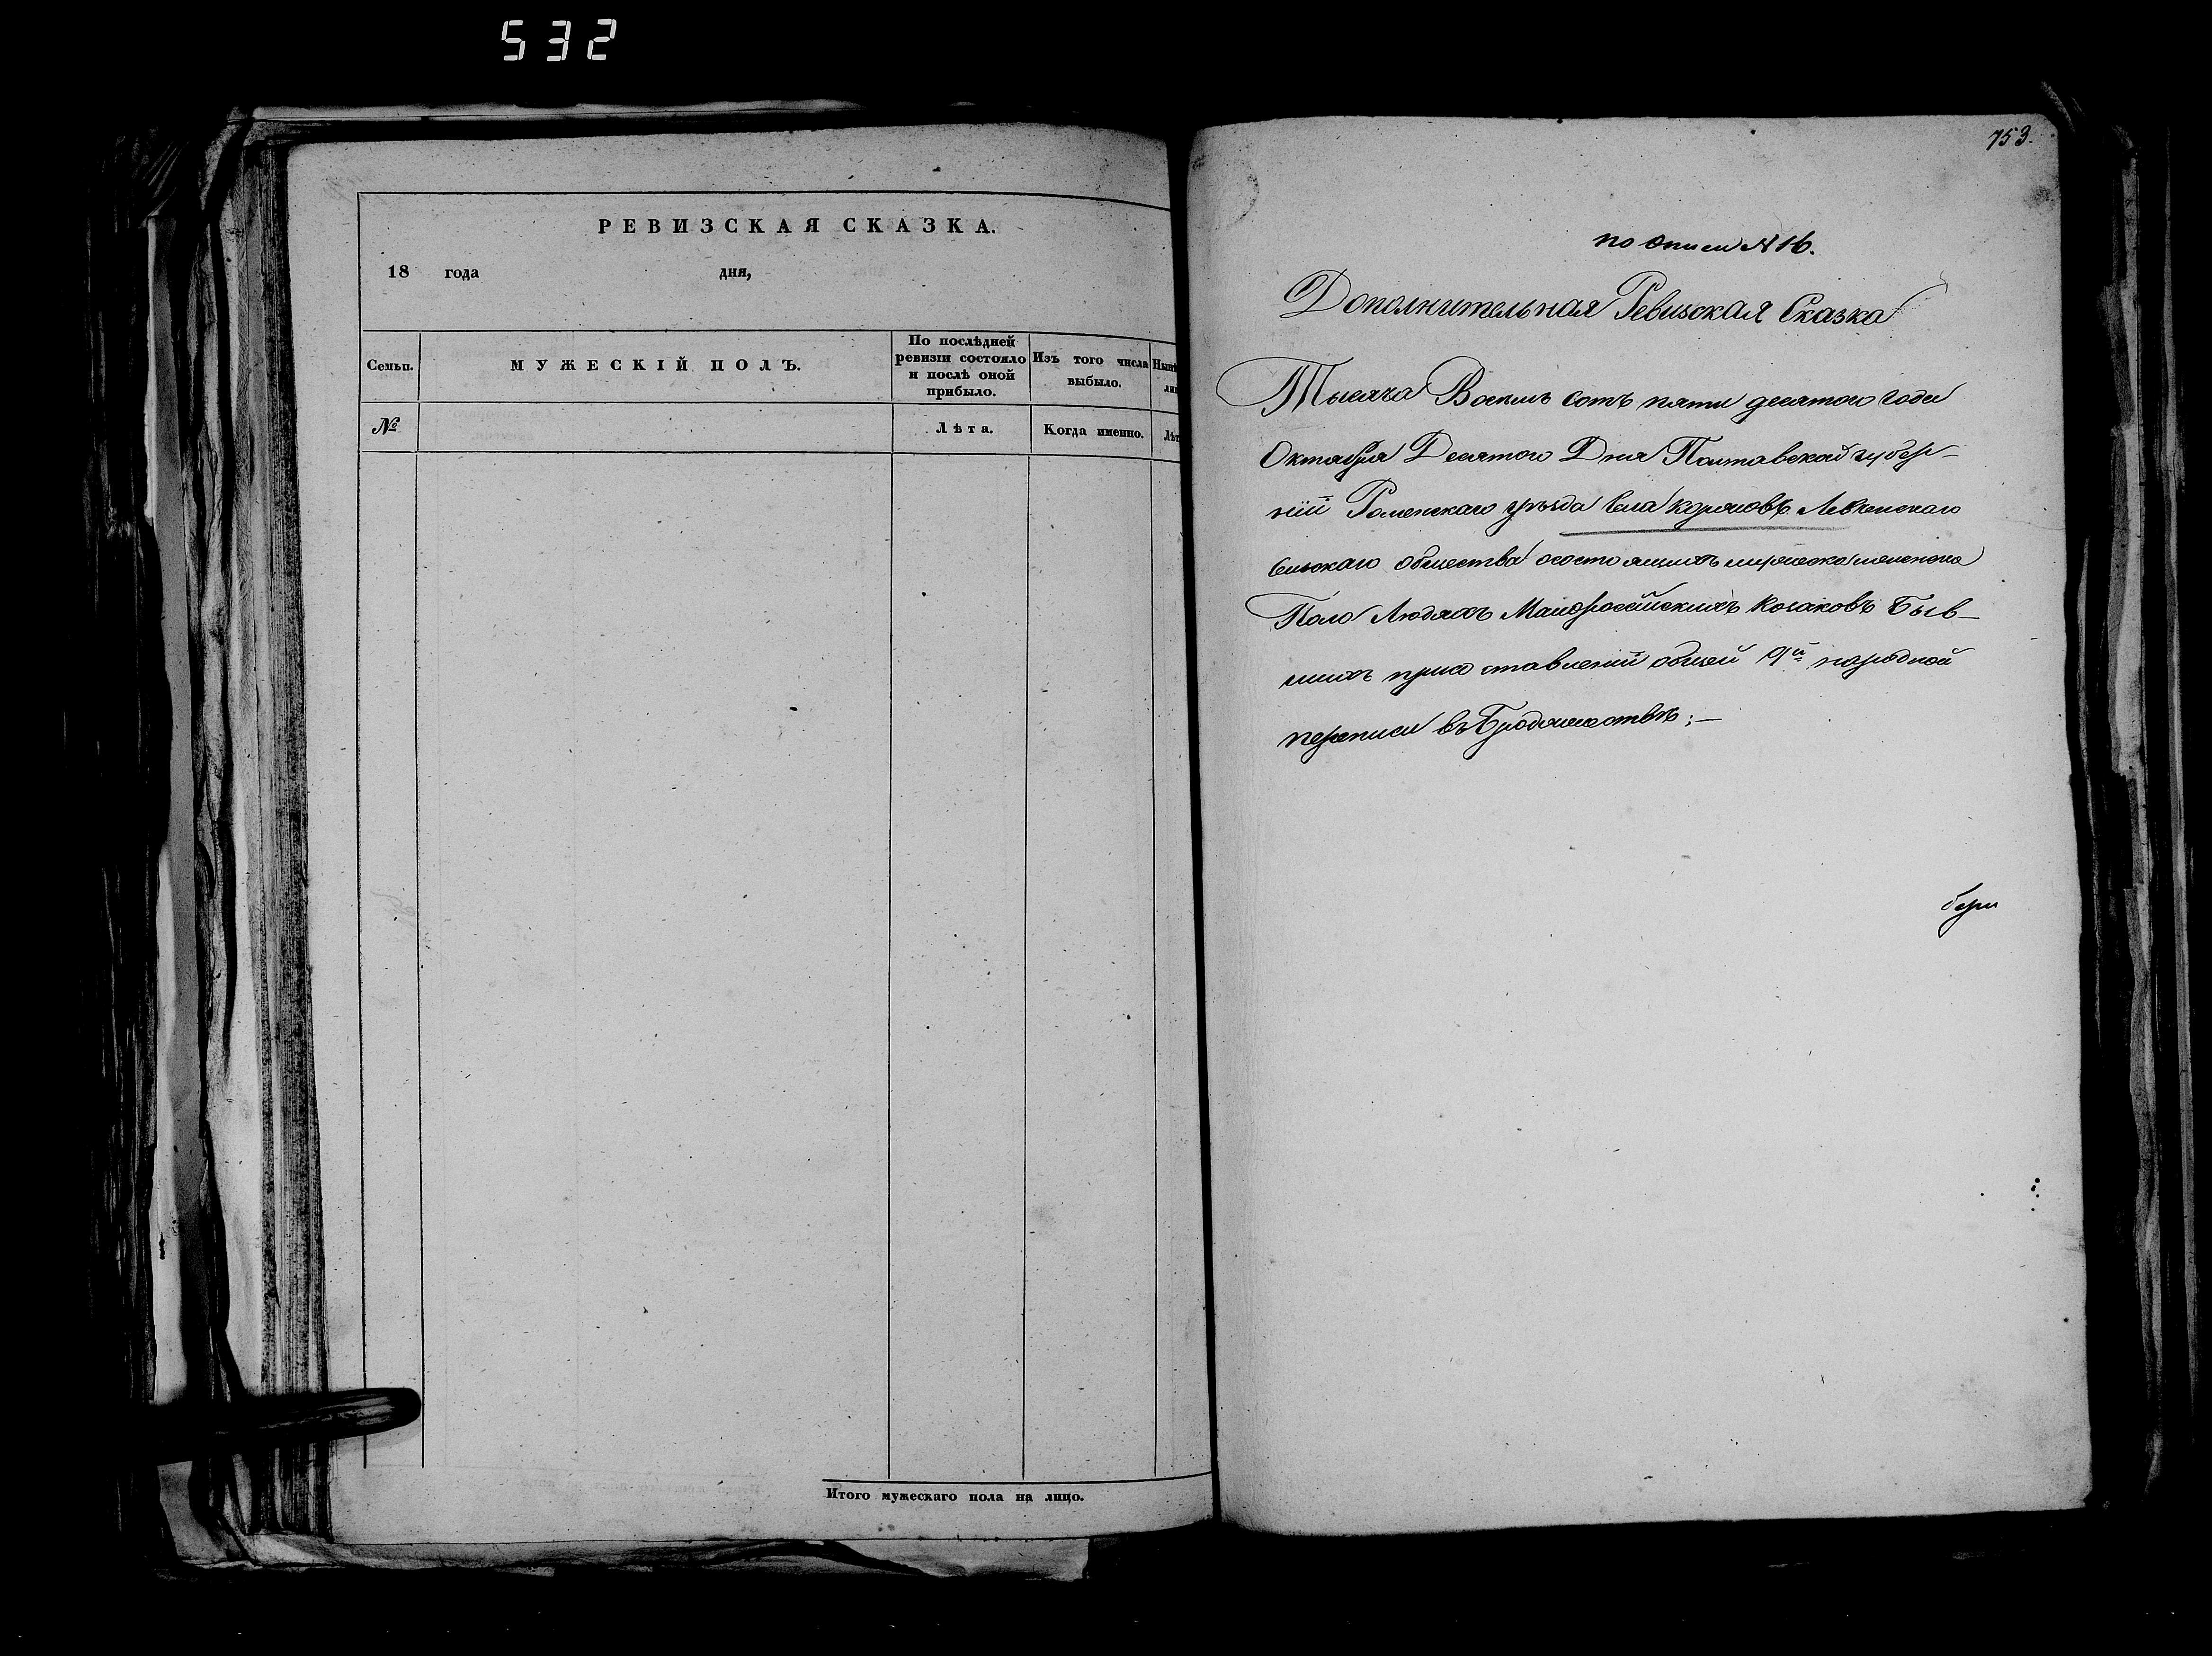 532
РЕВИЗСКАЯ СКАЗКА.
18 года дня,
Семьи.
МУЖЕСКІЙ ПОЛЪ.
По послѣдней ревизіи состояло и послѣ оной прибыло.
Изъ того числа выбыло.
№
Лѣта.
Когда именно.
Итого мужескаго пола на лицо.
753.
по описи №16.
Дополнительная Ревизская Сказка
Тысяча Восемь сотъ пяти десятого года
Октября Десятого Дня Полтавской губер-
нiй Роменскаго уѣзда села
сельскаго общества осостоящихъ
Пола Людяхъ Малороссiйскихъ Козаковъ Быв-
шихъ присоставленiй общей 9й народной
переписи въ Бродяжествѣ;-